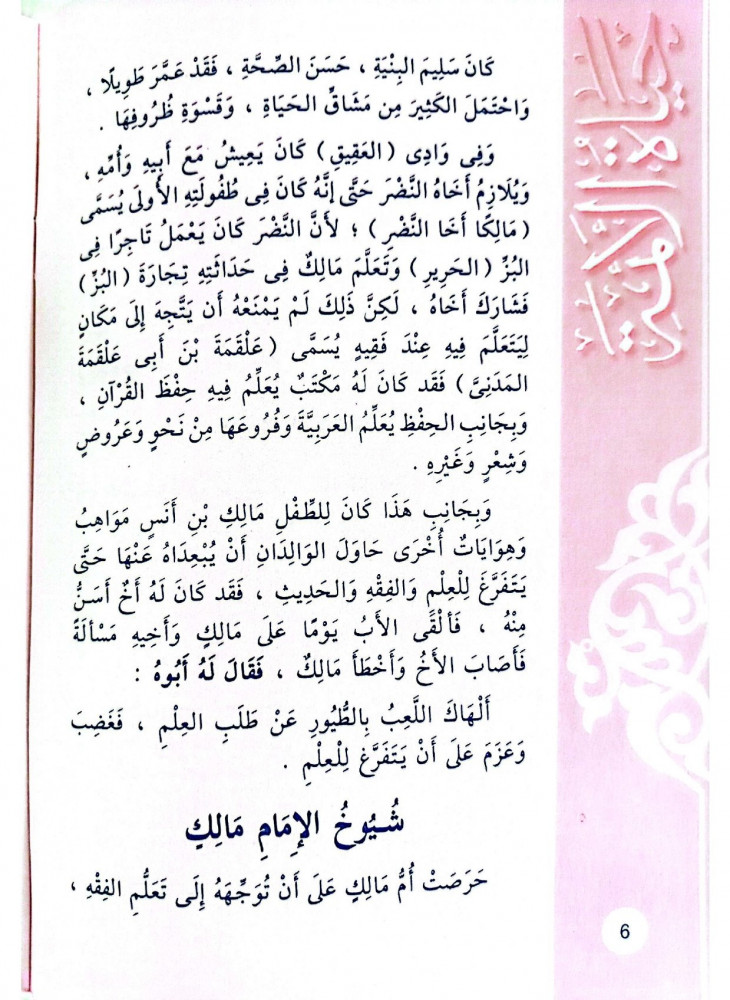 كَانَ سَلِيمَ البِنْيَةِ ، حَسَنَ الصِّحَّةِ ، فَقَدْ عَمَّرَ طَوِيلًا ،
وَاحْتَمَلَ الكَثِيرَ مِن مَشَاقِّ الحَيَاةِ ، وَقَسْوَةِ ظُرُوفِهَا .
وَفِى وَادِى (العَقِيقِ) كَانَ يَعِيشُ مَعَ أَبِيهِ وَأُمِّهِ ،
وَيُلَازِمُ أَخَاهُ النَّضْرَ حَتَّى إنَّهُ كَانَ فِى طُفُولَتِهِ الأُولَى يُسَمَّى
(مَالِكًا أَخَا النَّضْرِ) ؛ لأَنَّ النَّضْرَ كَانَ يَعْمَلُ تَاجِرًا فِى
البُزِّ (الحَرِيرِ) وَتَعَلَّمَ مَالِكٌ فِى حَدَاثَتِهِ تِجَارَةَ (البُزِّ)
فَشَارَكَ أَخَاهُ ، لَكِنَّ ذَلِكَ لَمْ يَمْنَعْهُ أَن يَتَّجِهَ إلَى مَكَانٍ
لِيَتَعَلَّمَ فِيهِ عِنْدَ فَقِيهٍ يُسَمَّى (عَلْقَمَةَ بْنَ أَبِى عَلْقَمَةَ
المَدَنِىَّ) فَقَد كَانَ لَهُ مَكْتَبٌ يُعَلِّمُ فِيهِ حِفْظَ القُرْآنِ ،
وَبِجَانِبِ الحِفْظِ يُعَلِّمُ العَرَبِيَّةَ وَفُرُوعَهَا مِنْ نَحْوٍ وَعَرُوضٍ
وَشِعْرٍ وَغَيْرِهِ .
وَبِجَانِبِ هَذَا كَانَ لِلطِّفْلِ مَالِكِ بْنِ أَنَسٍ مَوَاهِبُ
وَهِوَايَاتٌ أُخْرَى حَاوَلَ الوَالِدَانِ أَنْ يُبْعِدَاهُ عَنْهَا حَتَّى
يَتَفَرَّغَ لِلْعِلْمِ وَالفِقْهِ وَالحَدِيثِ ، فَقَد كَانَ لَهُ أَخٌ أَسَنُّ
مِنْهُ ، فَألْقَى الأَبُ يَوْمًا عَلَى مَالِكٍ وَأَخِيهِ مَسْألَةً
فَأَصَابَ الأَخُ وَأَخْطَأَ مَالِكٌ ، فَقَالَ لَهُ أَبُوهُ :
أَلْهَاكَ اللَّعِبُ بِالطُّيُورِ عَنْ طَلَبِ العِلْمِ ، فَغَضِبَ
وَعَزَمَ عَلَى أَنْ يَتَفَرَّغَ لِلْعِلْمِ .
شُيُوخُ الإِمَامِ مَالِكٍ
حَرَصَتْ أُمُّ مَالِكٍ عَلَى أَنْ تُوَجِّهَهُ إِلَى تَعَلُّمِ الفِقْهِ ،
حياة الأئمة
6